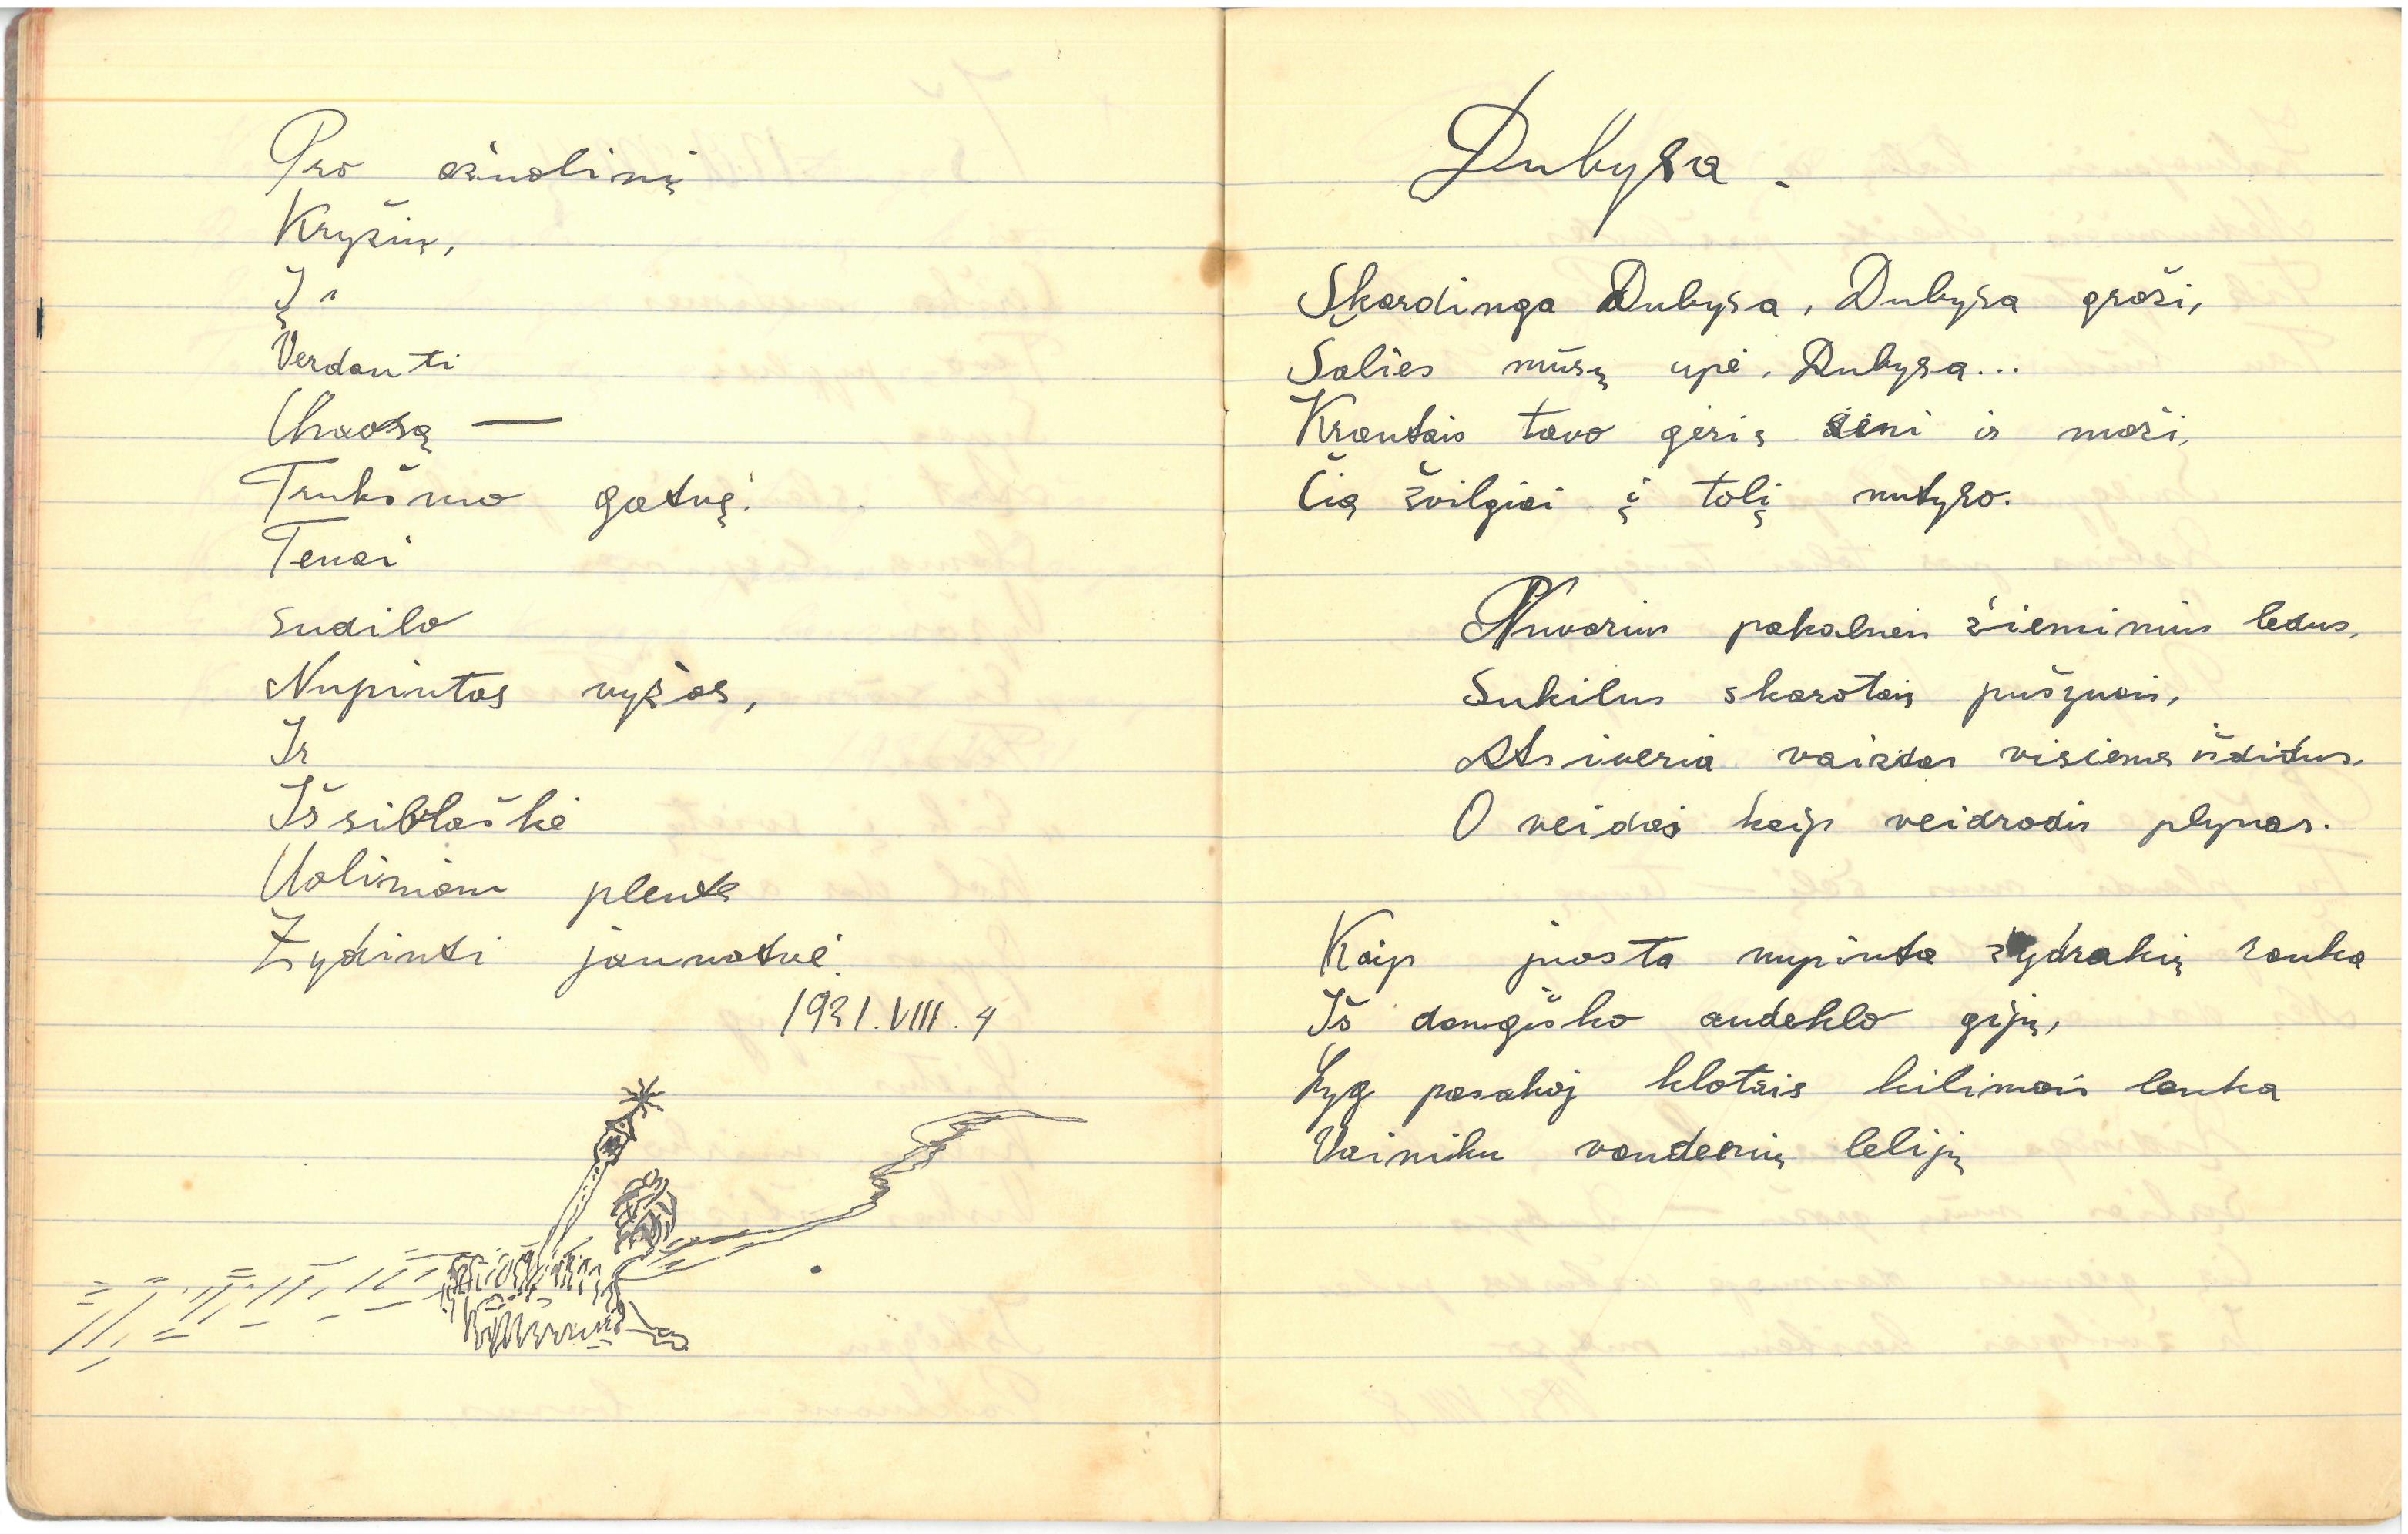 Pro ąžuolinį
Kryžių,
Į
Verdanti
Chaosą —
Trukšmo gatvę.
Tenai
sudilo
Nupintos vyžos,
Ir
Išsiblaškė
Uoliniam plente
Žydinti jaunatvė.
1931.VIII.4
Dubysa.
Skardinga Dubysa, Dubysa graži,
Šalies mūsų upė, Dubysa...
Krantais tavo gėris seni ir maži,
Čia žvilgiai į tolį nutyso.
Nuvarius pakalnėn žieminius ledus,
Sukilus skarotais pušynais,
Atsiveria vaizdas visiems išdidus,
O veidas kaip veidrodis plynas.
Kaip juosta nupinta žydrakių ranka
Iš dangiško audeklo gijų,
Lyg pasakoj klotais kilimais lanka
Vainiku vandenių lelijų